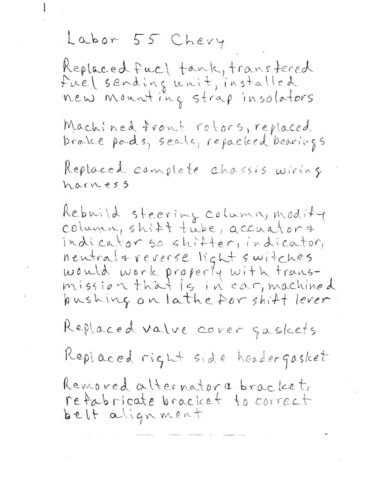 Labor 55 Chevy
Replaced fuel tank, transfered
fuel sending unit, installed
new mounting strap insolators
Machined front rotors, replaced
brake pads, seals, repacked bearings
Replaced complete chassis wiring
harness
Rebuild steering column, modify
column, shift tube, accuator &
indicator so shifter, indicator,
neutral & reverse light switches
would work properly with trans-
mission that is in car, machined
bushing on lathe for shift lever
Replaced valve cover gaskets
Replaced right side header gasket
Removed alternator & bracket,
refabricate bracket to correct
belt alignment